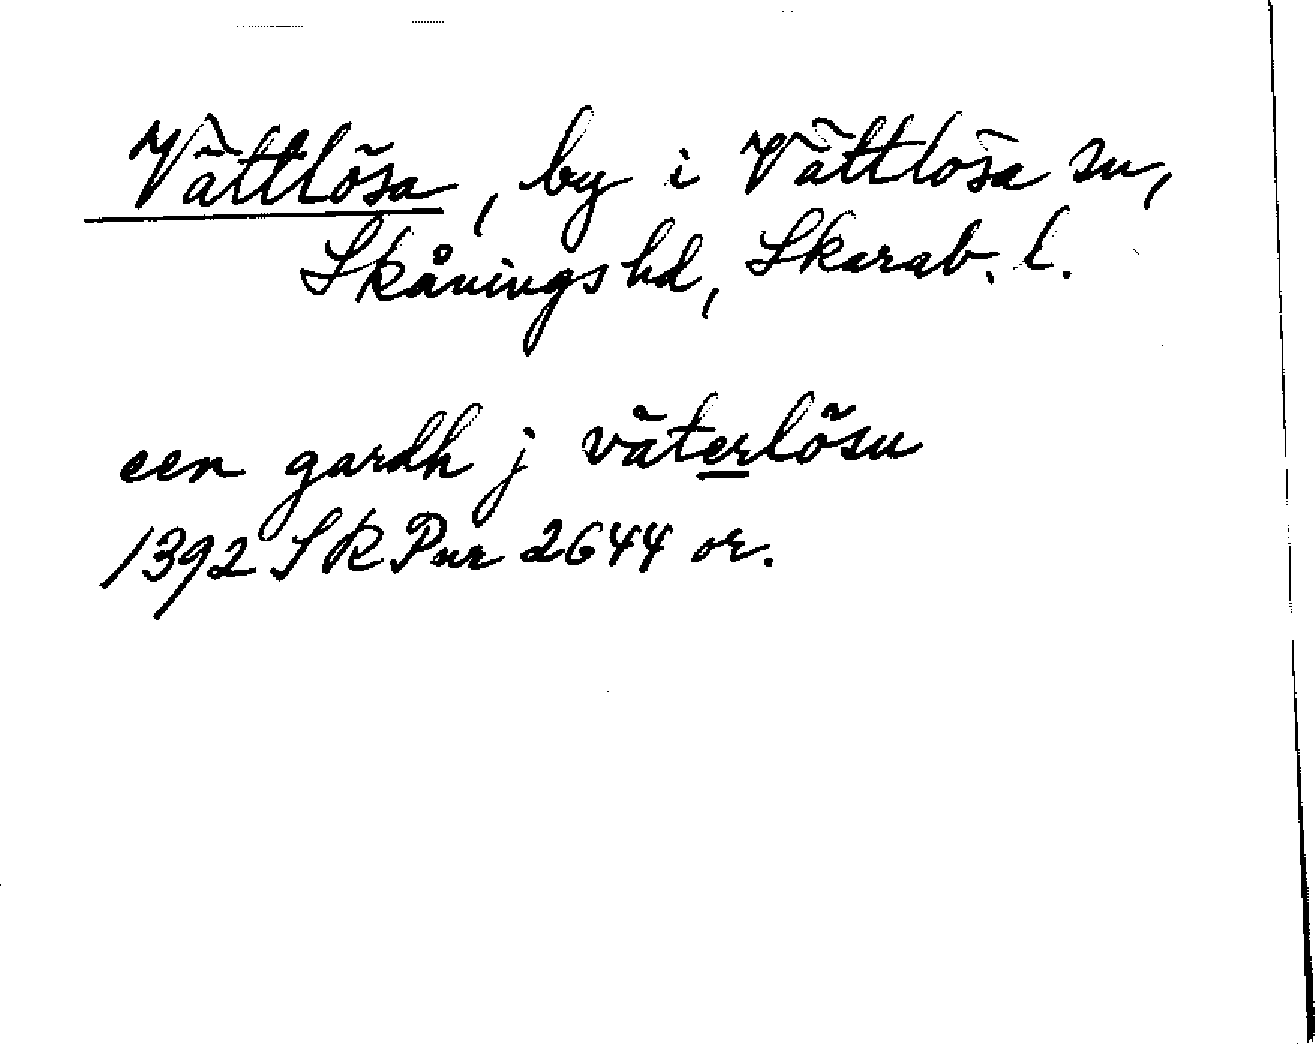 Vättlösa, by i Vättlösa sn,
Skånings hd, Skarab. l.
een gardh j väterlösu
1392 SRPur 2644 or.